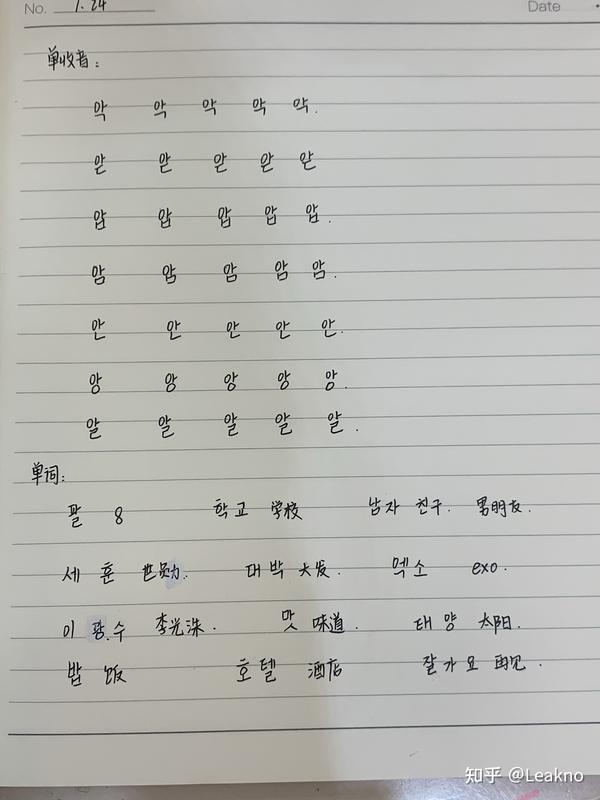 No. 1.24 Date
单收音:
악 악 악 악 악.
앋 앋 앋 앋 앋
압 압 압 압 압.
암 암 암 암 암.
안 안 안 안 안.
앙 앙 앙 앙 앙.
알 알 알 알 알.
单词:
팔 8 학교 学校 남자 친구. 男朋友.
세 훈 世勋. 대박 大发. 엑소 exo.
이 광.수 李光洙. 맛 味道. 태양 太阳.
밥 饭 호텔 酒店 잘가요 再见.
知乎 @Leakno